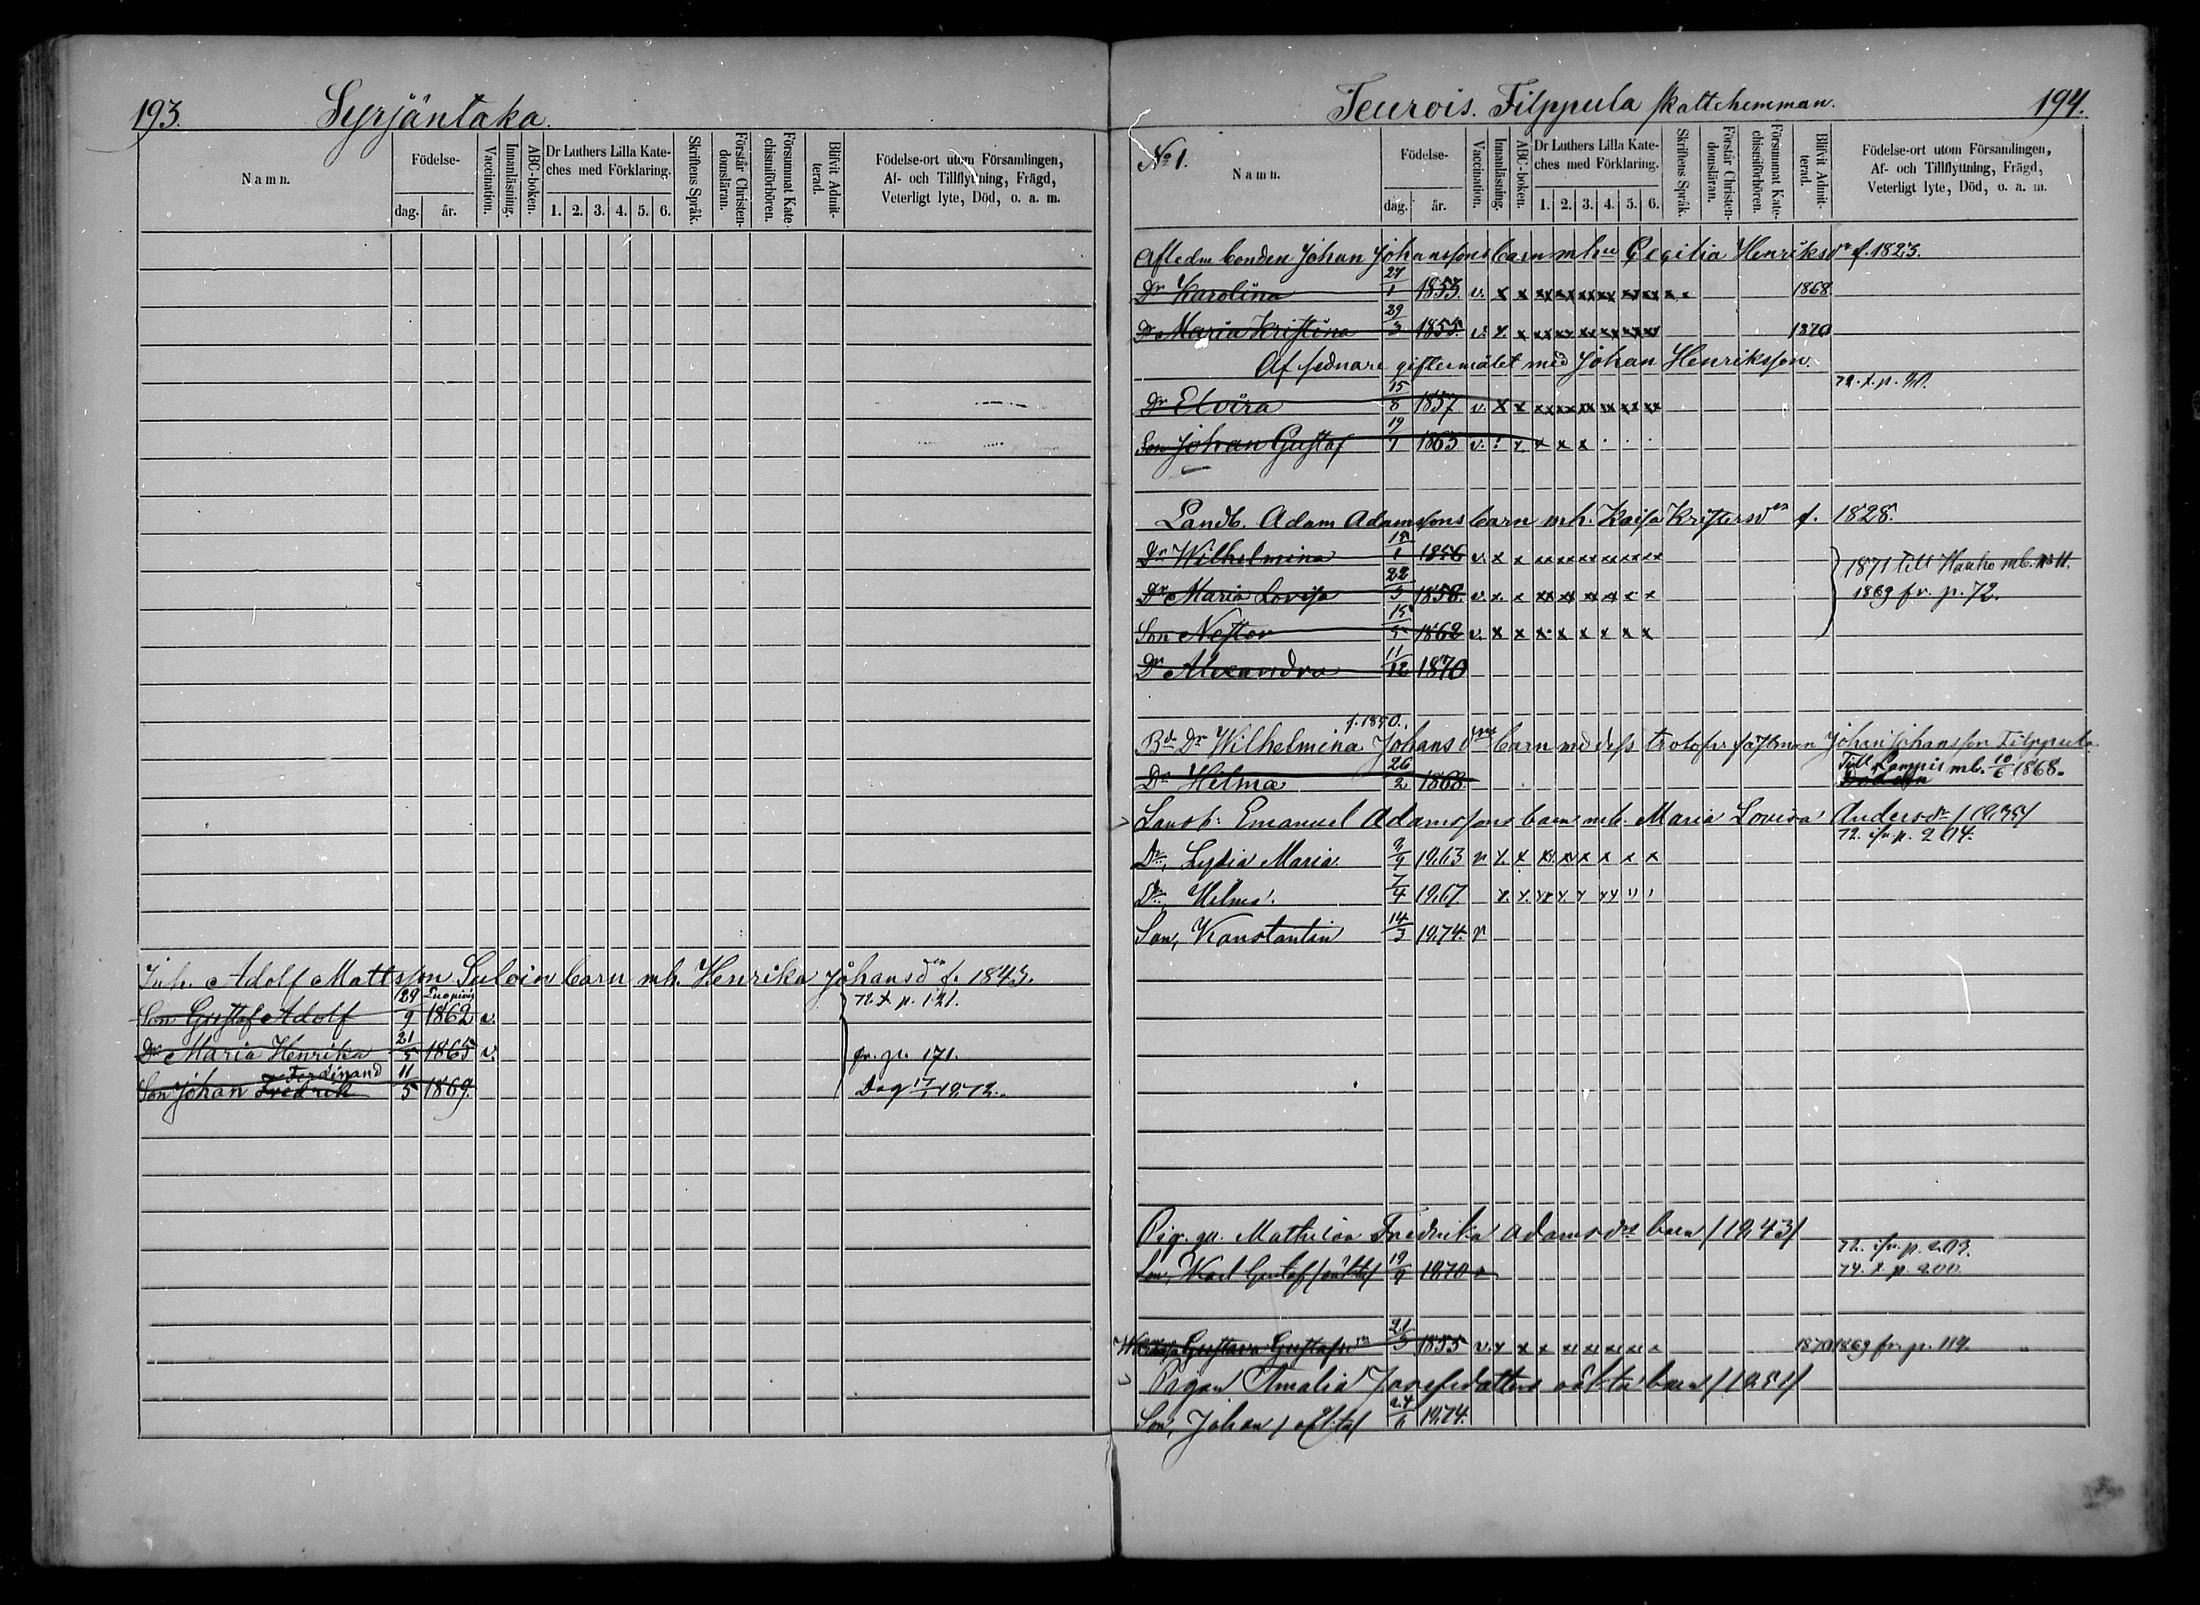 193. Syrjäntaka.
Namn.
Födelse-
dag. år.
Vaccination.
Innanläsning.
ABC-boken.
Dr Luthers Lilla Kate-
ches med Förklaring.
1. 2. 3. 4. 5. 6.
Skriftens Språk.
Förstår Christen-
domsläran.
Försummat Kate-
chismiförhören.
Blifvit Admit-
terad.
Födelse-ort utom Församlingen,
Af- och Tillflyttning, Frägd,
Veterligt lyte, Död, o. a. m.
Inh. Adolf Mattsson Suloin barn mh. Henrika Johansdr f. 1843.
Son Gustaf Adolf 29/9 1862 v. 72. t. p. 121.
Dr Maria Henrika 21/5 1865 v. fr. p. 171.
Ferdinand
Son Johan Fredrik 11/5 1869.
Teurois. Filppula skattehemman. 194.
No 1.
Namn.
Födelse-
dag. år.
Vaccination.
Innanläsning.
ABC-boken.
Dr Luthers Lilla Kate-
ches med Förklaring.
1. 2. 3. 4. 5. 6.
Skriftens Språk.
Förstår Christen-
domsläran.
Försummat Kate-
chiseiförhören.
Blifvit Admit-
terad.
Födelse-ort utom Församlingen,
Af- och Tillflyttning, Frägd,
Veterligt lyte, Död, o. a. m.
Afledne bonden Johan Johanssons barn mhu Cecilia Henriksdr f. 1823.
Dr Karolina 27/1 1853. v. x x xx xx xx xx xx xx x x 1868
Dr Maria Kristina 29/3 1855. v. x. x xx xx xx xx xx xx 1870
Af sednare giftermålet med Johan Henriksson.
Dr Elvira 15/8 1857 v. x x xx xx xx xx xx xx
Son Johan Gustaf 19/1 1863 v.
Landb. Adam Adamssons barn mh. Kaisa Kristersdr f. 1828.
Dr Wilhelmina 15/1 1856 v. x x xx xx xx xx xx xx 1871 till Hauho mb. No 11.
Dr Maria Lovisa 22/3 1858. v. x. x xx xx xx xx x x 1869 fr. p. 72.
Son Nestor 15/5 1862 v. x x x x x x x x
Dr Alexandra 11/12 1870
f. 1850.
Bde Dr Wilhelmina Johansdrs barn med dess trolofv. fästman Johan Johansson Filppula
Dr Hilma 26/2 1868 Till Lampis mb. 10/6 1868.
Landb: Emanuel Adamssons barn mh. Maria Lovisa Andersdr
72. ifr. p. 204.
Dr, Lydia Maria 1863 v x. x xx xx x x x x
Dr, Hilma 7/4 1867.
Son, Konstantin 14/3 1874. v
Pig. gu. Mathilda Fredrika Adamsdrs barn /1843/
72. ifr. p. 203.
Son, Karl Gustaf /oäkta/ 1870 v 74. t. p. 200.
Gustava Gustafsdr 21/3 1855 v. x x x xx xx xx x 1870 1869 fr. p. 119.
Pigan Amalia Josefsdotters oäkta barn /1851/
Son, Johan /oäkta/ 24/6 1874.